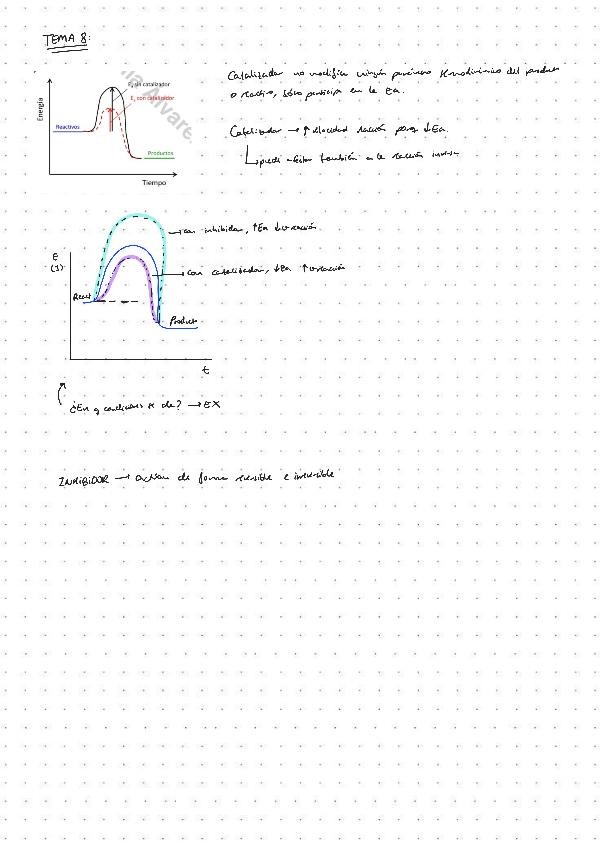 TEMA 8:
Ea sin catalizador
Ea con catalizador
Energía
Reactivos
Productos
Tiempo
Catalizador no modifica ningún parámetro termodinámico del producto
o reactivo, sólo participa en la Ea.
Catalizador → ↑ velocidad reacción porq ↓Ea.
puede afectar también a la reacción inversa
→ con inhibidor, ↑Ea ↓v reacción
e
(J)
→ con catalizador, ↓Ea ↑v reacción
React
Product
t
¿En q condiciones se da? → EX
INHIBIDOR → actúan de forma reversible e irreversible